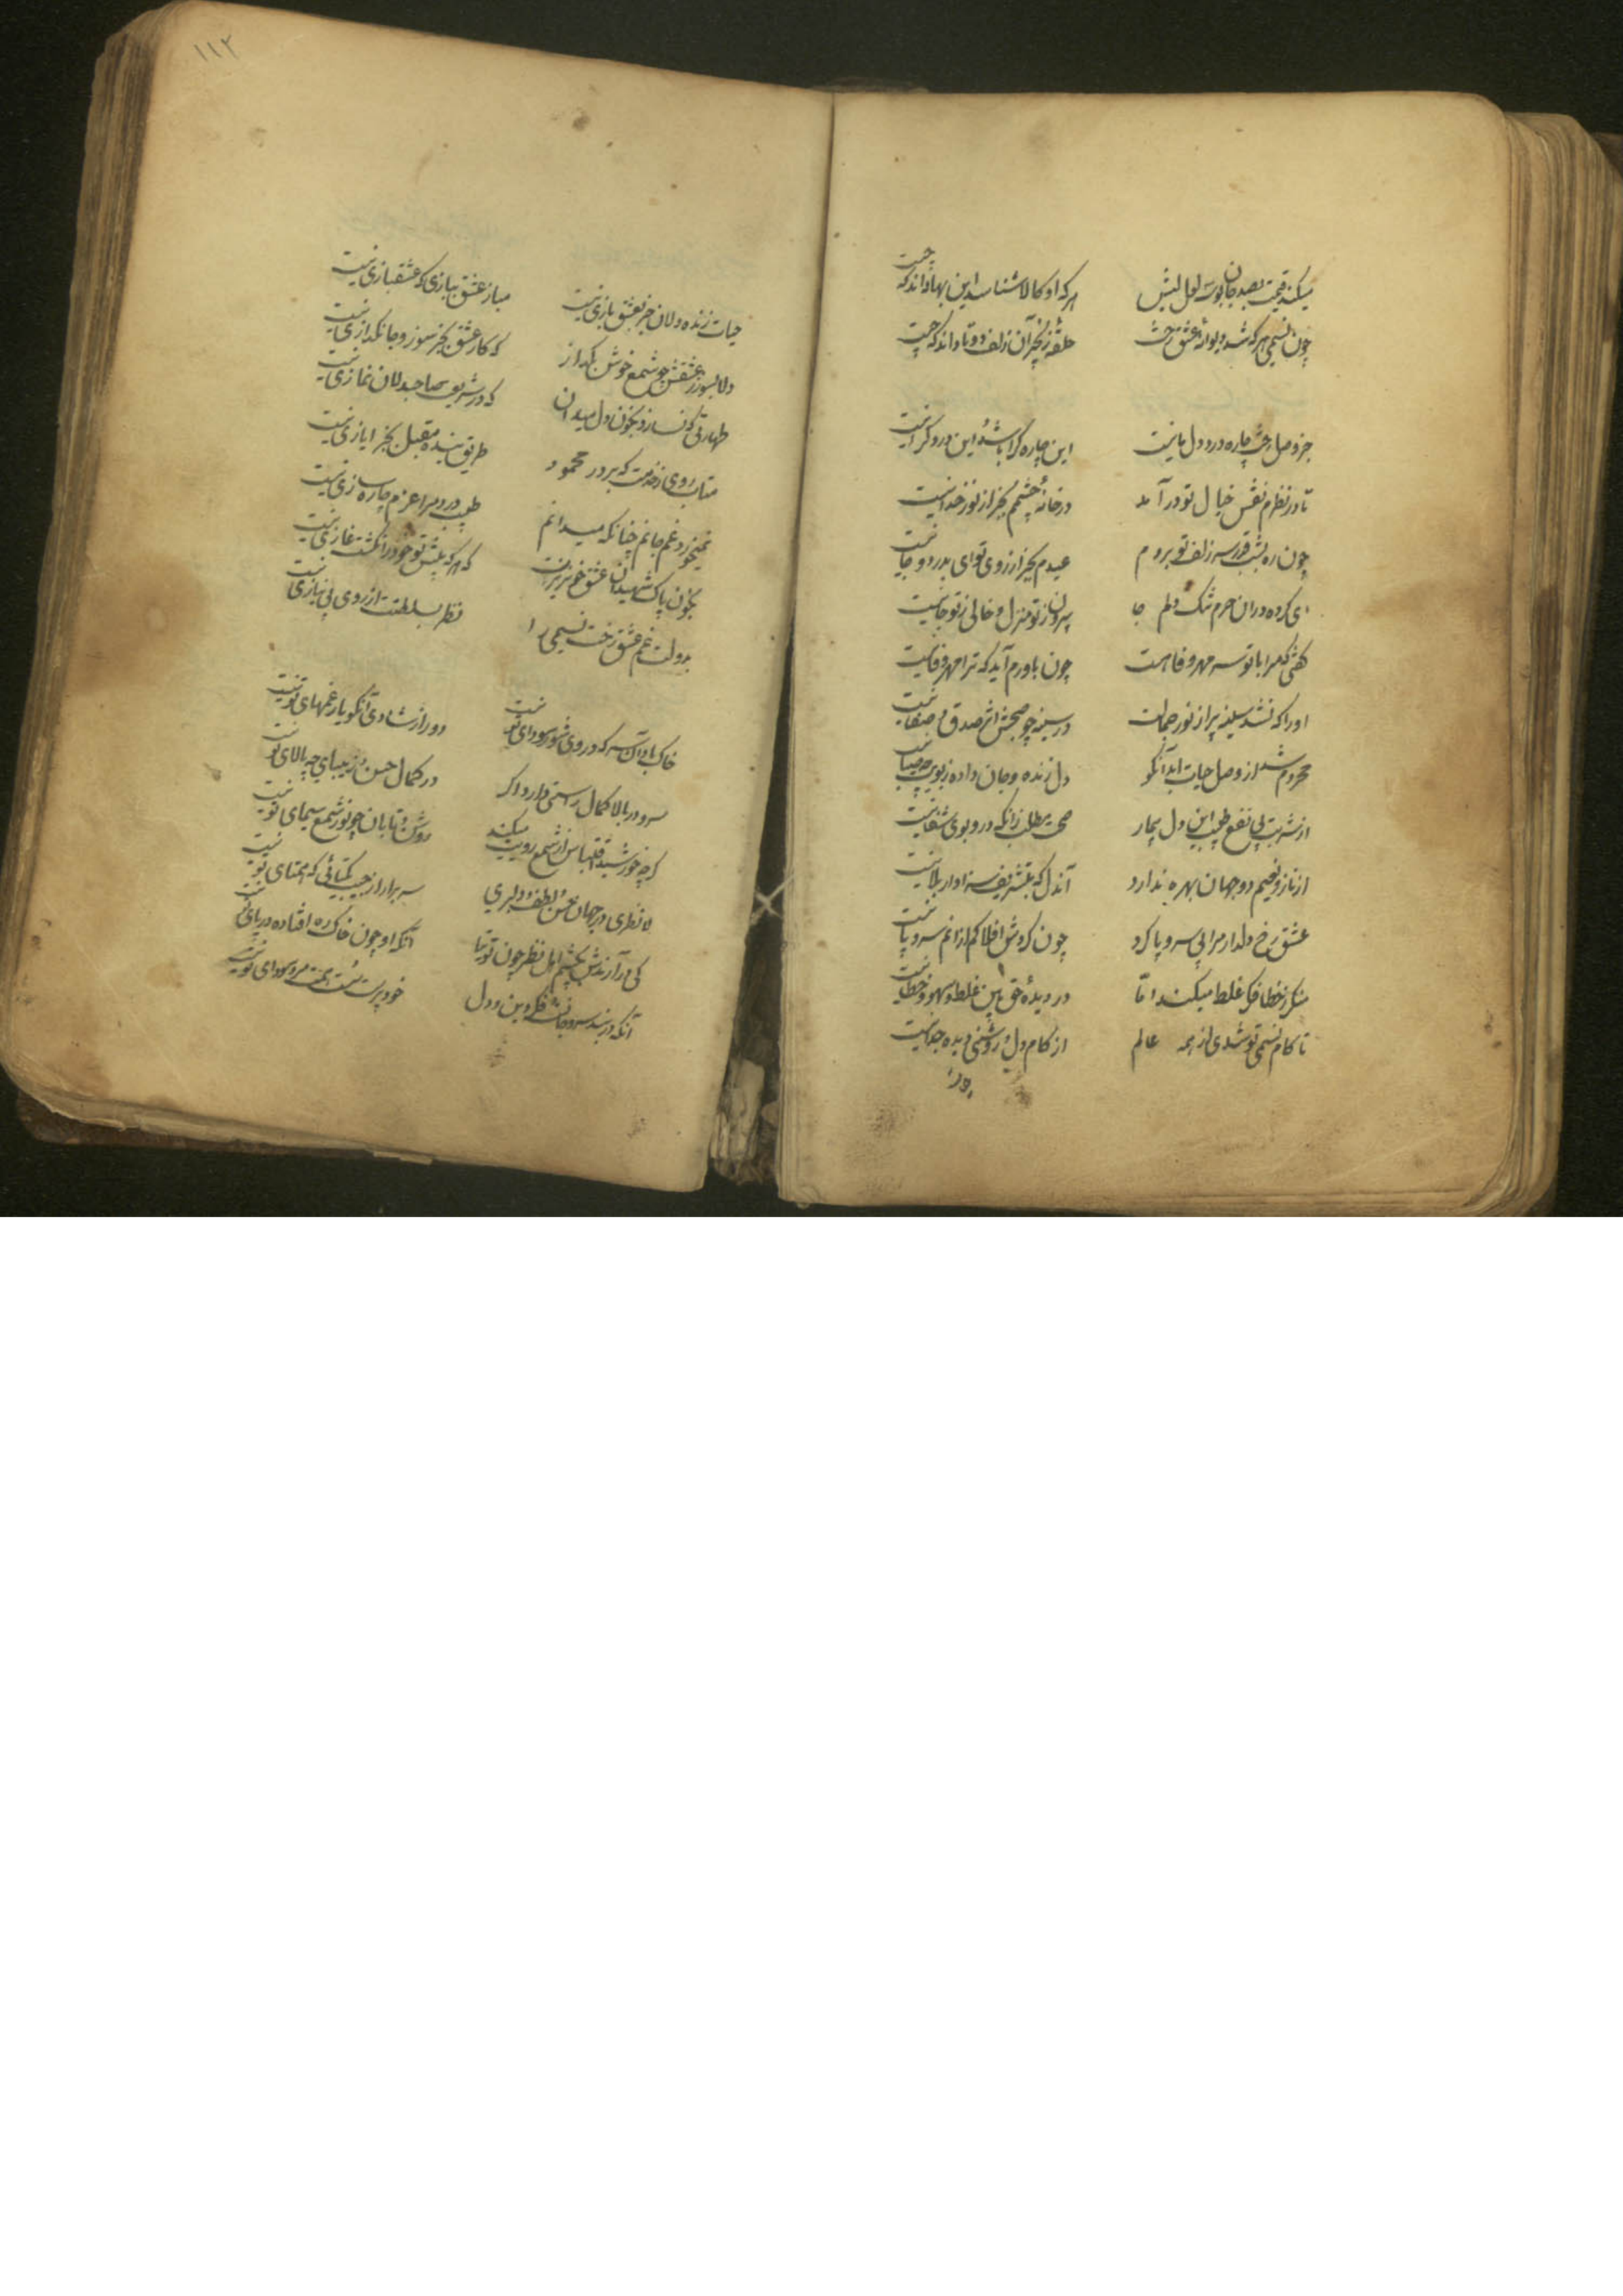 میکند قیمت بصد جان بوسه لعل لبش هر که او کالا شناسد این بها داند که چیست
چون نسیمی هر که شد دیوانه عشق رخت حلقه زنجیر آن زلف دو تا داند که چیست
جز وصل رخت چاره درد دل ما نیست این چاره کرا باشد و این درد کرا نیست
تا در نظرم نقش خیال تو درآمد در خانه چشمم بجز از نور خدا نیست
چون ره بشب قدر سر زلف تو بردم عیدم بجز از روی تو ای بدر دوجا نیست
ای کرده در آن حرم تنک دلم جا بیرون ز تو منزل و خالی ز تو جا نیست
کفتی که مرا با تو سر مهر و وفا هست چون باورم آید که ترا مهر و وفا نیست
او را که نشد سینه پر از نور جمالت در سینه چو صبحش اثر صدق و صفا نیست
محروم شد از وصل حیات ابد آنکو دل زنده و جان داده ز بوی چو صبا نیست
از شربت بی نفع طبیب این دل بیمار صحت مطلب زانکه درو بوی شفا نیست
از ناز و نعیم دو جهان بهره ندارد آندل که بتشریف سزاوار بلا نیست
عشق رخ دلدار مرا بی سر و پا کرد چون کردش افلاکم از انم سر و پا نیست
منکر ز خطا فکر غلط میکند اما در دیده حق بین غلط و سهو و خطا نیست
تا کام نسیمی تو شدی از همه عالم از کام دل و روشنی دیده جدا نیست
۱۱۲
حیات زنده دلان جز بعشق بازی نیست مباز عشق ببازی که عشقبازی نیست
دلا بسوز ز عشقش چو شمع خوش بکداز که کار عشق بجز سوز و جانکدازی نیست
طهارتی کو نسازد بخون دل میدان که در شریعت صاحبدلان نمازی نیست
متاب روی ز خدمت که بر در محمود طریق بنده مقبل بجز ایازی نیست
نمیخورد غم جانم چنانکه میدانم طبیب درد مرا عزم چاره سازی نیست
بخون پاک شهیدان عشق خونریزت که هر که پیش تو خود را نکشت غازی نیست
بدولت غم عشق رخت نسیمی را نظر بسلطنت از روی بی نیازی نیست
خاک باد آن سر که در وی شور سودای تو نیست دور از شادی آنکو یار غمهای تو نیست
سرو در بالا کمال راستی دارد اکر در کمال حسن و زیبایی چو بالای تو نیست
کرچه خورشید اقتباس از شمع رویت میکند روشن و تابان چو نور شمع سیمای تو نیست
لا نظیری در جهان حسن و لطف و دلبری سر برار از جیب یکتائی که همتای تو نیست
کی درآرندش بچشم اهل نظر چون توتیا آنکه او چون خاک ره افتاده در پای تو نیست
آنکه در بند سر و جانست و فکر دین و دل خودپرست است همت مرد سودای تو نیست